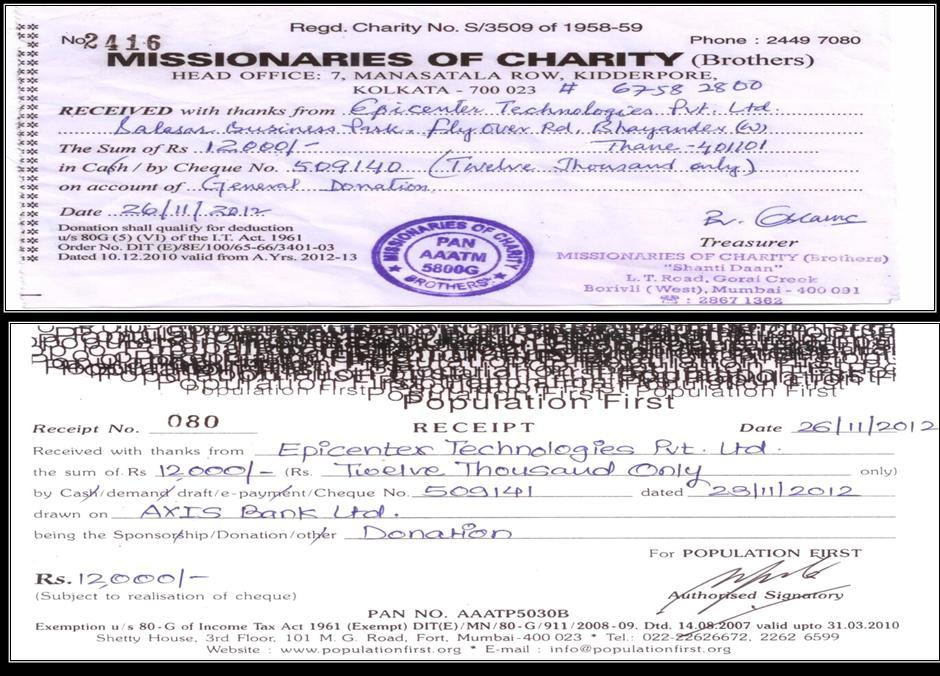 Regd. Charity No. S/3509 of 1958-59
No 2416
Phone : 2449 7080
MISSIONARIES OF CHARITY (Brothers)
HEAD OFFICE: 7, MANASATALA ROW, KIDDERPORE,
KOLKATA - 700 023 # 6758 2800
RECEIVED with thanks from Epicenter Technologies Pvt. Ltd.
Salasar Business Park - Fly Over Rd, Bhayander (W)
The Sum of Rs 12,000/- Thane - 401101
in Cash / by Cheque No. 509140 (Twelve Thousand only.)
on account of General Donation
Date 26/11/2012
Donation shall qualify for deduction
u/s 80G (5) (VI) of the I.T. Act. 1961
Order No. DIT (E)/8E/100/65-66/3401-03
Dated 10.12.2010 valid from A.Yrs. 2012-13
MISSIONARIES OF CHARITY
PAN
AAATM
5800G
BROTHERS
Br.
Treasurer
MISSIONARIES OF CHARITY (Brothers)
"Shanti Daan"
L. T. Road, Gorai Creek
Borivli (West), Mumbai - 400 091
: 2867 1362
Population First
Receipt No. 080 RECEIPT Date 26/11/2012
Received with thanks from Epicenter Technologies Pvt. Ltd.
the sum of Rs 12,000/- (Rs. Twelve Thousand Only only)
by Cash/demand draft/e-payment/Cheque No. 509141 dated 23/11/2012
drawn on AXIS Bank Ltd.
being the Sponsorship/Donation/other Donation
For POPULATION FIRST
Rs. 12,000/-
(Subject to realisation of cheque)
Authorised Signatory
PAN NO. AAATP5030B
Exemption u/s 80-G of Income Tax Act 1961 (Exempt) DIT(E)/MN/80-G/911/2008-09. Dtd. 14.08.2007 valid upto 31.03.2010
Shetty House, 3rd Floor, 101 M. G. Road, Fort, Mumbai-400 023 * Tel.: 022-22626672, 2262 6599
Website : www.populationfirst.org * E-mail : info@populationfirst.org